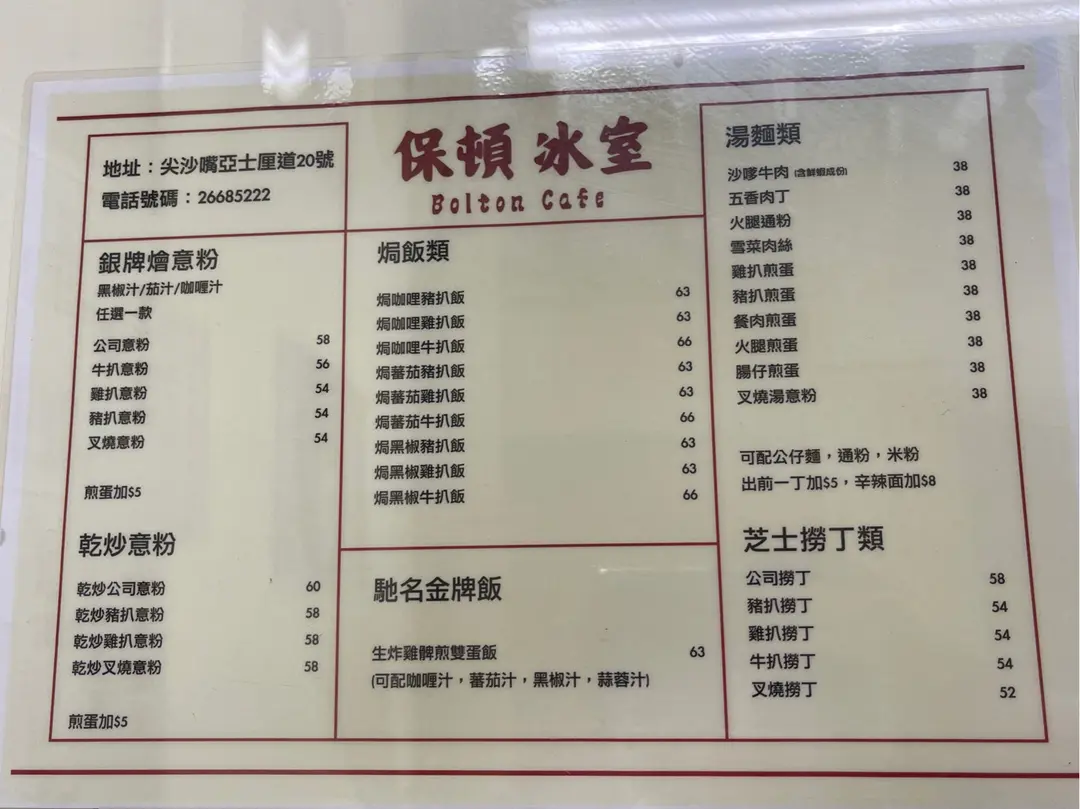 地址：尖沙嘴亞士厘道20號
電話號碼：26685222
保頓冰室
Bolton Cafe
銀牌燴意粉
黑椒汁/茄汁/咖喱汁
任選一款
公司意粉 58
牛扒意粉 56
雞扒意粉 54
豬扒意粉 54
叉燒意粉 54
煎蛋加$5
乾炒意粉
乾炒公司意粉 60
乾炒豬扒意粉 58
乾炒雞扒意粉 58
乾炒叉燒意粉 58
煎蛋加$5
焗飯類
焗咖哩豬扒飯 63
焗咖哩雞扒飯 63
焗咖哩牛扒飯 66
焗蕃茄豬扒飯 63
焗蕃茄雞扒飯 63
焗蕃茄牛扒飯 66
焗黑椒豬扒飯 63
焗黑椒雞扒飯 63
焗黑椒牛扒飯 66
馳名金牌飯
生炸雞髀煎雙蛋飯 63
(可配咖喱汁，蕃茄汁，黑椒汁，蒜蓉汁)
湯麵類
沙嗲牛肉 (含鮮蝦成份) 38
五香肉丁 38
火腿通粉 38
雪菜肉絲 38
雞扒煎蛋 38
豬扒煎蛋 38
餐肉煎蛋 38
火腿煎蛋 38
腸仔煎蛋 38
叉燒湯意粉 38
可配公仔麵，通粉，米粉
出前一丁加$5，辛辣面加$8
芝士撈丁類
公司撈丁 58
豬扒撈丁 54
雞扒撈丁 54
牛扒撈丁 54
叉燒撈丁 52